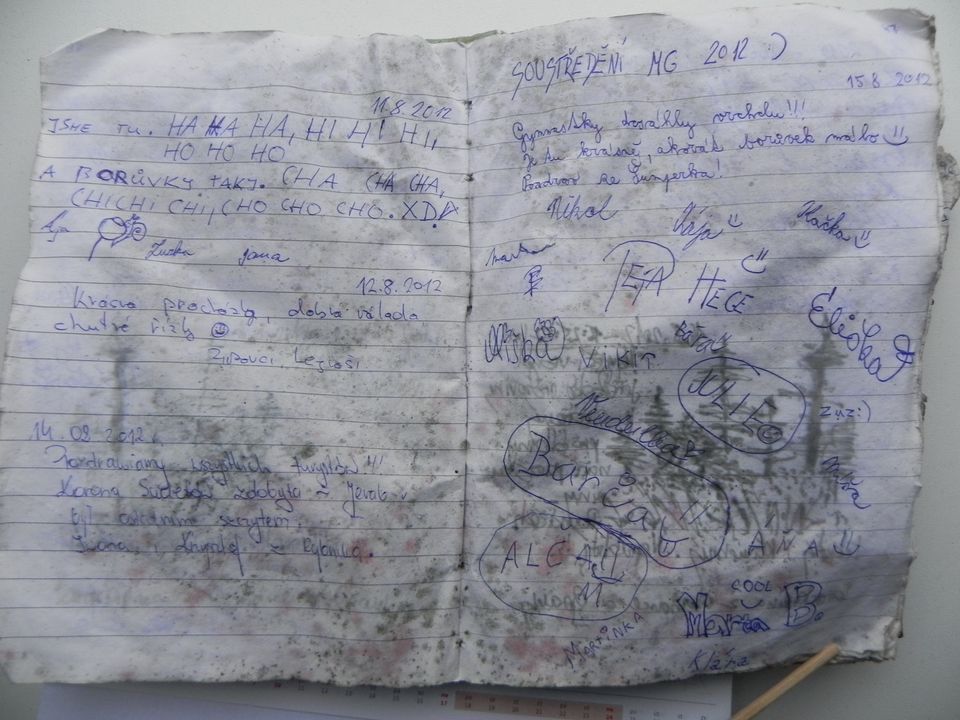 11.8.2012
JSME TU. HA HA HA, HI HI HI,
HO HO HO
A BORŮVKY TAKY. CHA CHA CHA,
CHICHI CHI, CHO CHO CHO. XD
Lucka Jana
12.8.2012
Krásná procházka, dobrá nálada
chutné řízky
14.08.2012r.
Pozdrawiamy wszystkich turystów!!!
Korona Sudetów zdobyta – Jeřab
był ostatnim szczytem.
Iwona i Krzysztof z Rybnika.
SOUSTŘEDĚNÍ MG 2012 :)
15.8. 2012
Gymnastky dosáhly vrcholu!!!
Je tu krásně, akorát borůvek málo
Pozdrav ze Šumperka!
Nikol Kája Kačka
TEJA HEČE
Eliška
Miška VIKIT
Zuz :)
Barča
AŇA
ALČA
M
COOL
Marťa B.
MARTINKA
Klára